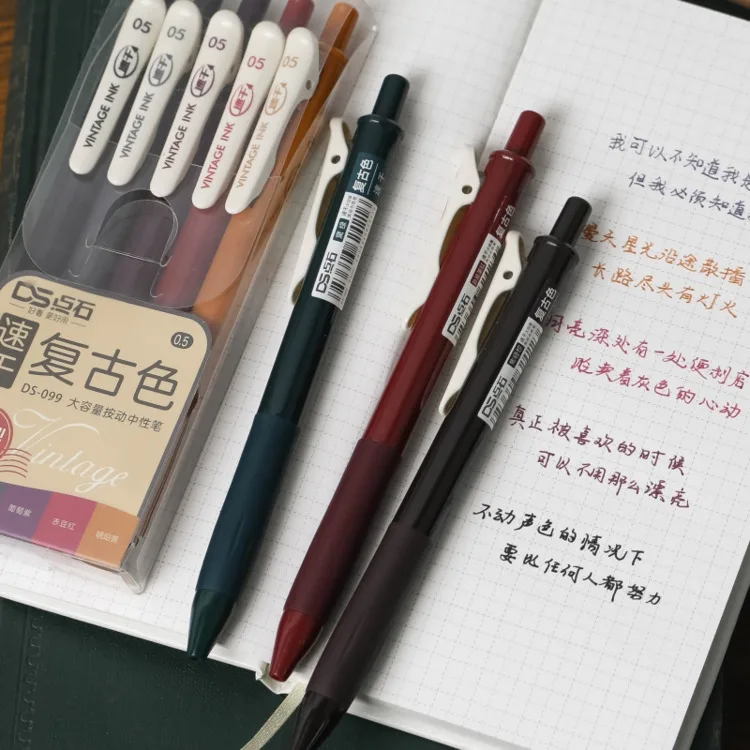 05
VINTAGE INK
05
VINTAGE INK
05
VINTAGE INK
05
速干
VINTAGE INK
05
速干
VINTAGE INK
DS点石
好看 更好用
0.5
速干
复古色
DS-099 大容量按动中性笔
Vintage
葡萄紫
赤豆红
复古色
速干
DS点石
复古色
DS点石
复古色
DS点石
我可以不知道我
但我必须知道
漫天星光沿途散播
长路尽头有灯火
月亮深处有一处便利店
贩卖着灰色的心动
真正被喜欢的时候
可以不用那么漂亮
不动声色的情况下
要比任何人都努力